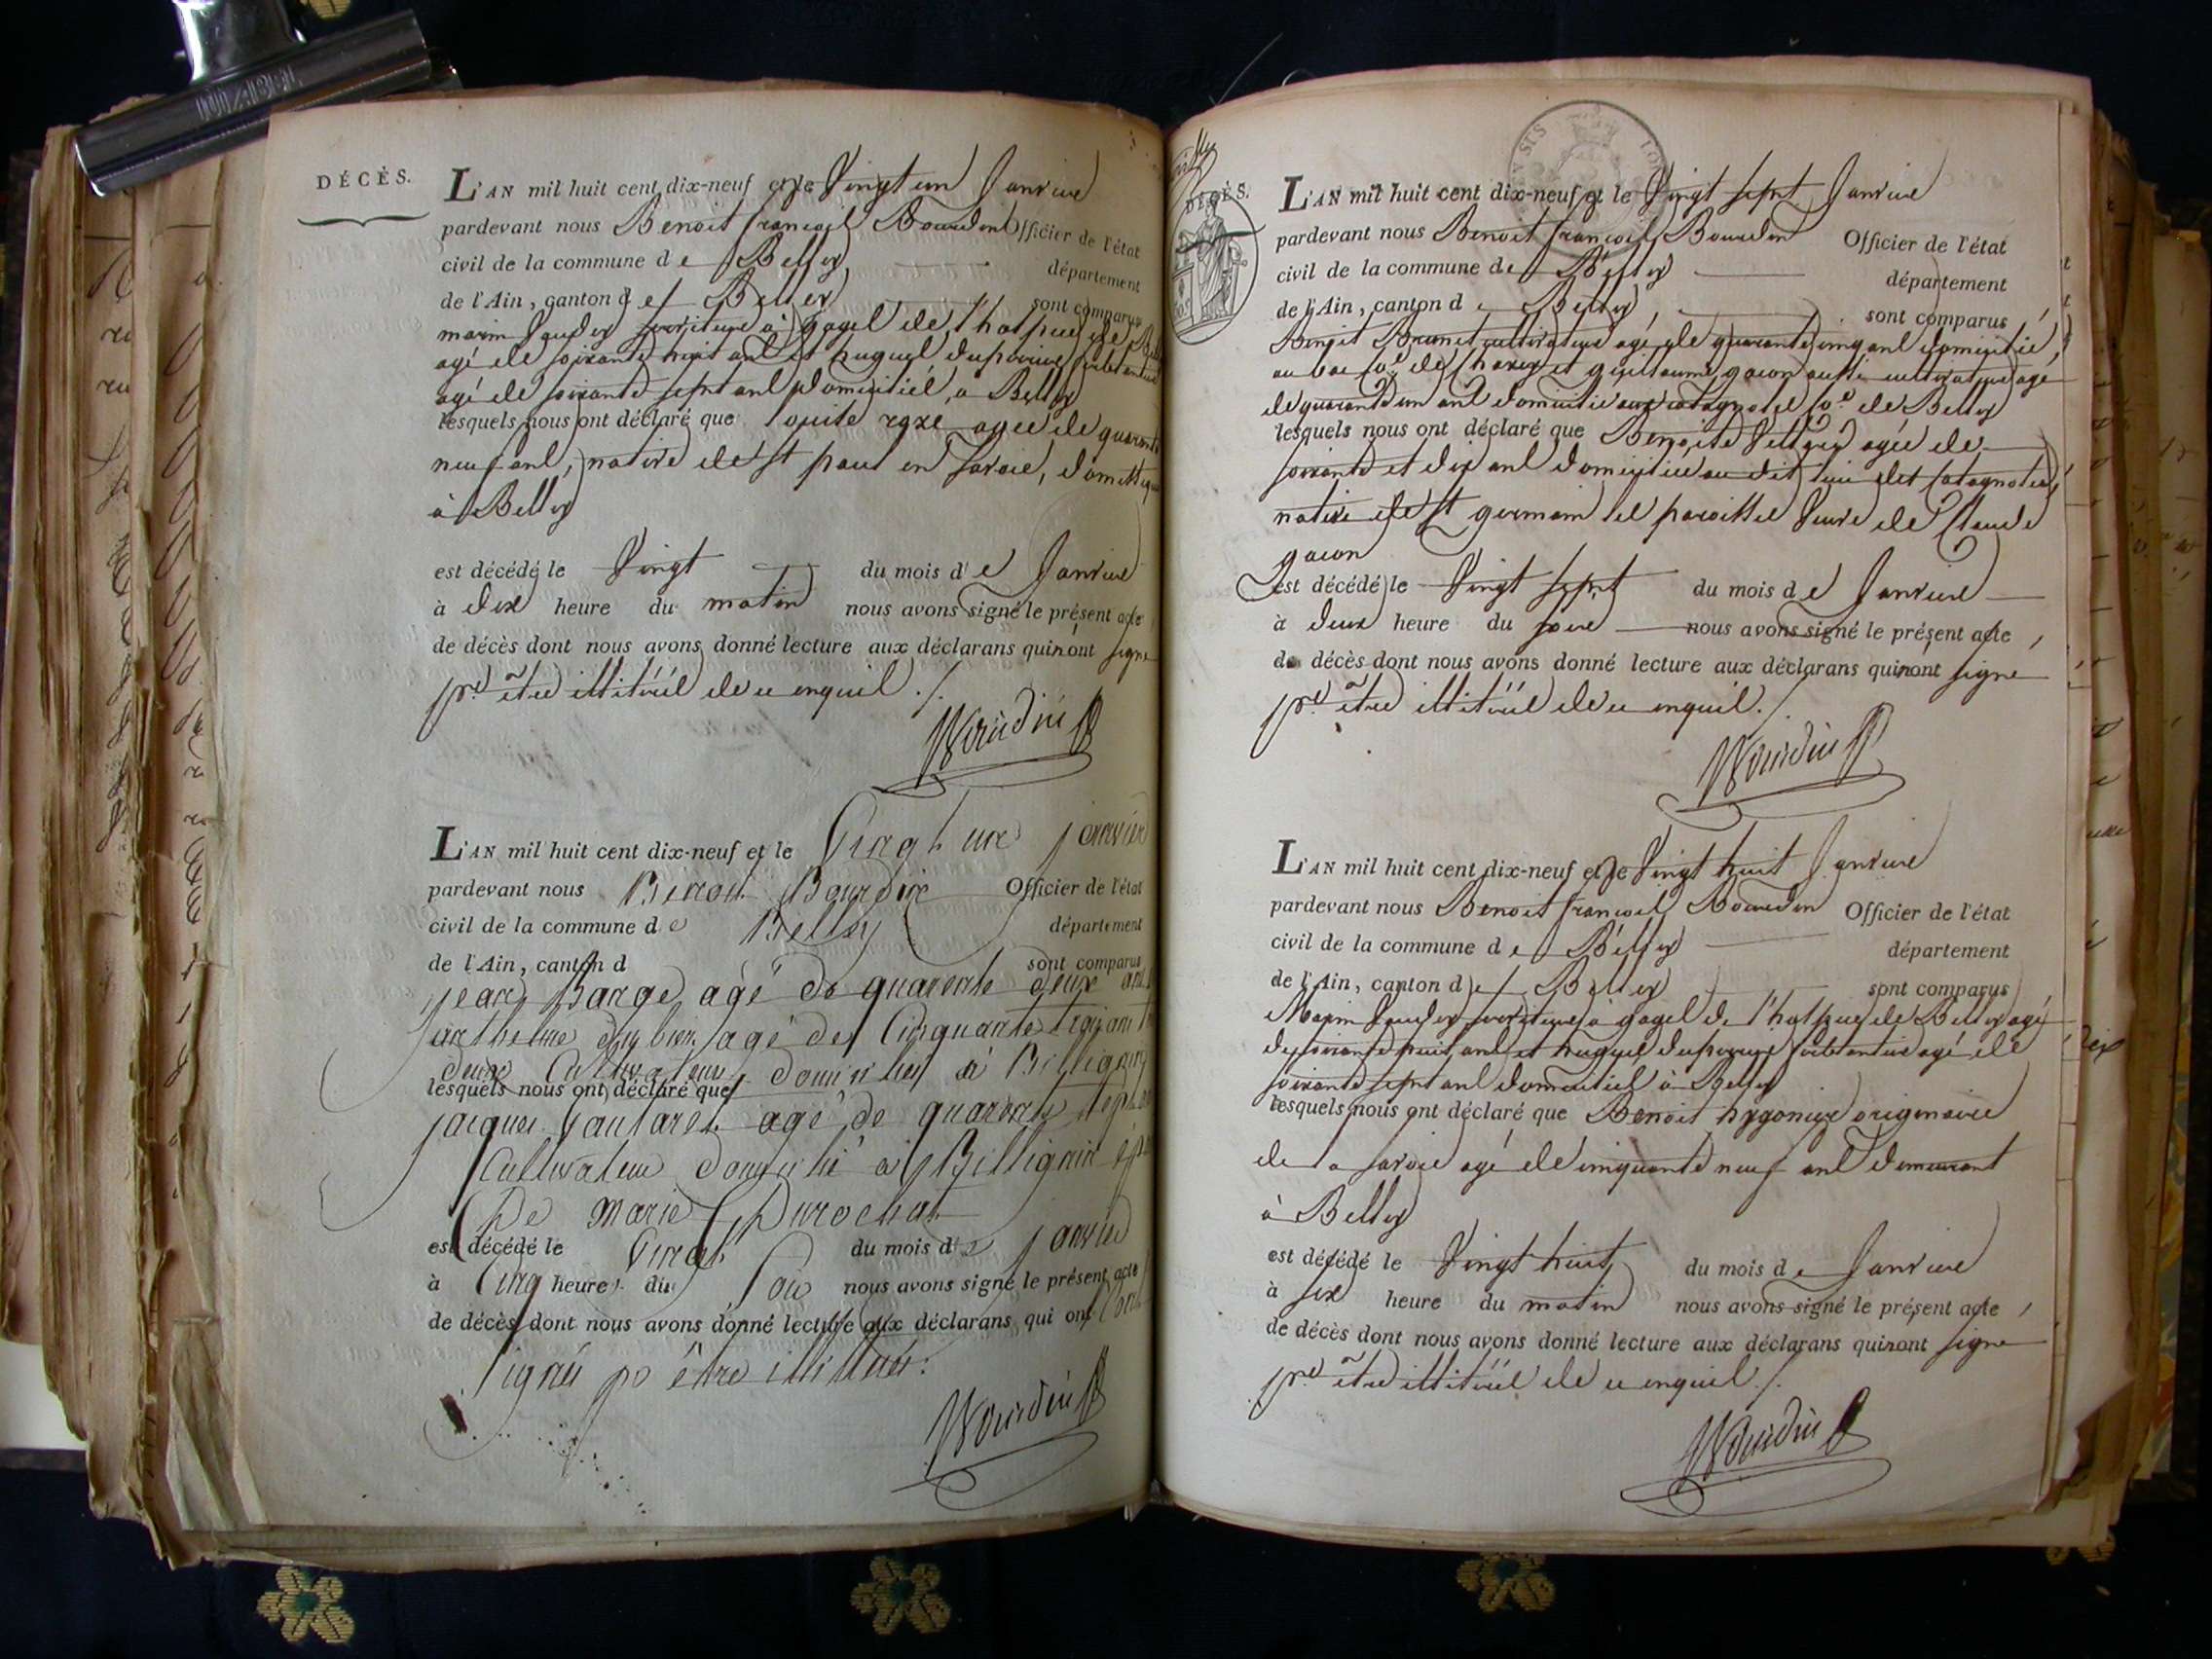 DÉCÈS.
L'AN mil huit cent dix-neuf et le Vingt un Janvier
pardevant nous Benoit françois Bourdin Officier de l'état
civil de la commune de Belley département
de l'Ain, canton de Belley sont comparus
marin serviteur à gages de l'hospice de
agé de soixante huit ans et hugues
agé de soixante sept ans domiciliés à Belley
lesquels nous ont déclaré que agée de quarante
neuf ans, native de St paul en Savoie,
à Belley
est décédé le Vingt du mois de Janvier
à dix heure du matin nous avons signé le présent acte
de décès dont nous avons donné lecture aux déclarans qui n'ont signé
pr. être illitérés de ce enquis ./.
Bourdin
L'AN mil huit cent dix-neuf et le Vingt un janvier
pardevant nous Benoit Bourdin Officier de l'état
civil de la commune de Belley département
de l'Ain, canton d sont comparus
jean Barge agé de quarante deux ans
anthelme dubien agé de Cinquante trois ans
deux Cultivateurs domiciliés à Billignin
lesquels nous ont déclaré que
jacques Gautaret agé de quarante sept
Cultivateur domicilié à Billignin
De Marie Durochat
est décédé le Vingt du mois de janvier
à Cinq heures du Soir nous avons signé le présent acte
de décès dont nous avons donné lecture aux déclarans qui ont
signés pr être illitérés.
Bourdin
DÉCÈS.
L'AN mil huit cent dix-neuf et le Vingt sept Janvier
pardevant nous Benoit françois Bourdin Officier de l'état
civil de la commune de Belley département
de l'Ain, canton de Belley sont comparus
Benoit Brunet cultivateur agé de quarante cinq ans domicilié
et guillaume gacon aussi cultivateur agé
de quarante un ans domicilié aux de Belley
lesquels nous ont déclaré que Benoite agée de
soixante et dix ans domiciliée au dit lieu des
native de St germain les paroisses Veuve de Claude
gacon
est décédé le Vingt sept du mois de Janvier
à deux heure du soir nous avons signé le présent acte
de décès dont nous avons donné lecture aux déclarans qui n'ont signé
pr. être illitérés de ce enquis ./.
Bourdin
L'AN mil huit cent dix-neuf et le Vingt huit Janvier
pardevant nous Benoit françois Bourdin Officier de l'état
civil de la commune de Belley département
de l'Ain, canton de Belley sont comparus
Marin serviteur à gages de l'hospice de Belley agé
de soixante huit ans et hugues agé de
soixante sept ans domiciliés à Belley
lesquels nous ont déclaré que Benoit originaire
de la savoie agé de cinquante neuf ans demeurant
à Belley
est décédé le Vingt huit du mois de Janvier
à six heure du matin nous avons signé le présent acte
de décès dont nous avons donné lecture aux déclarans qui n'ont signé
pr. être illitérés de ce enquis ./.
Bourdin